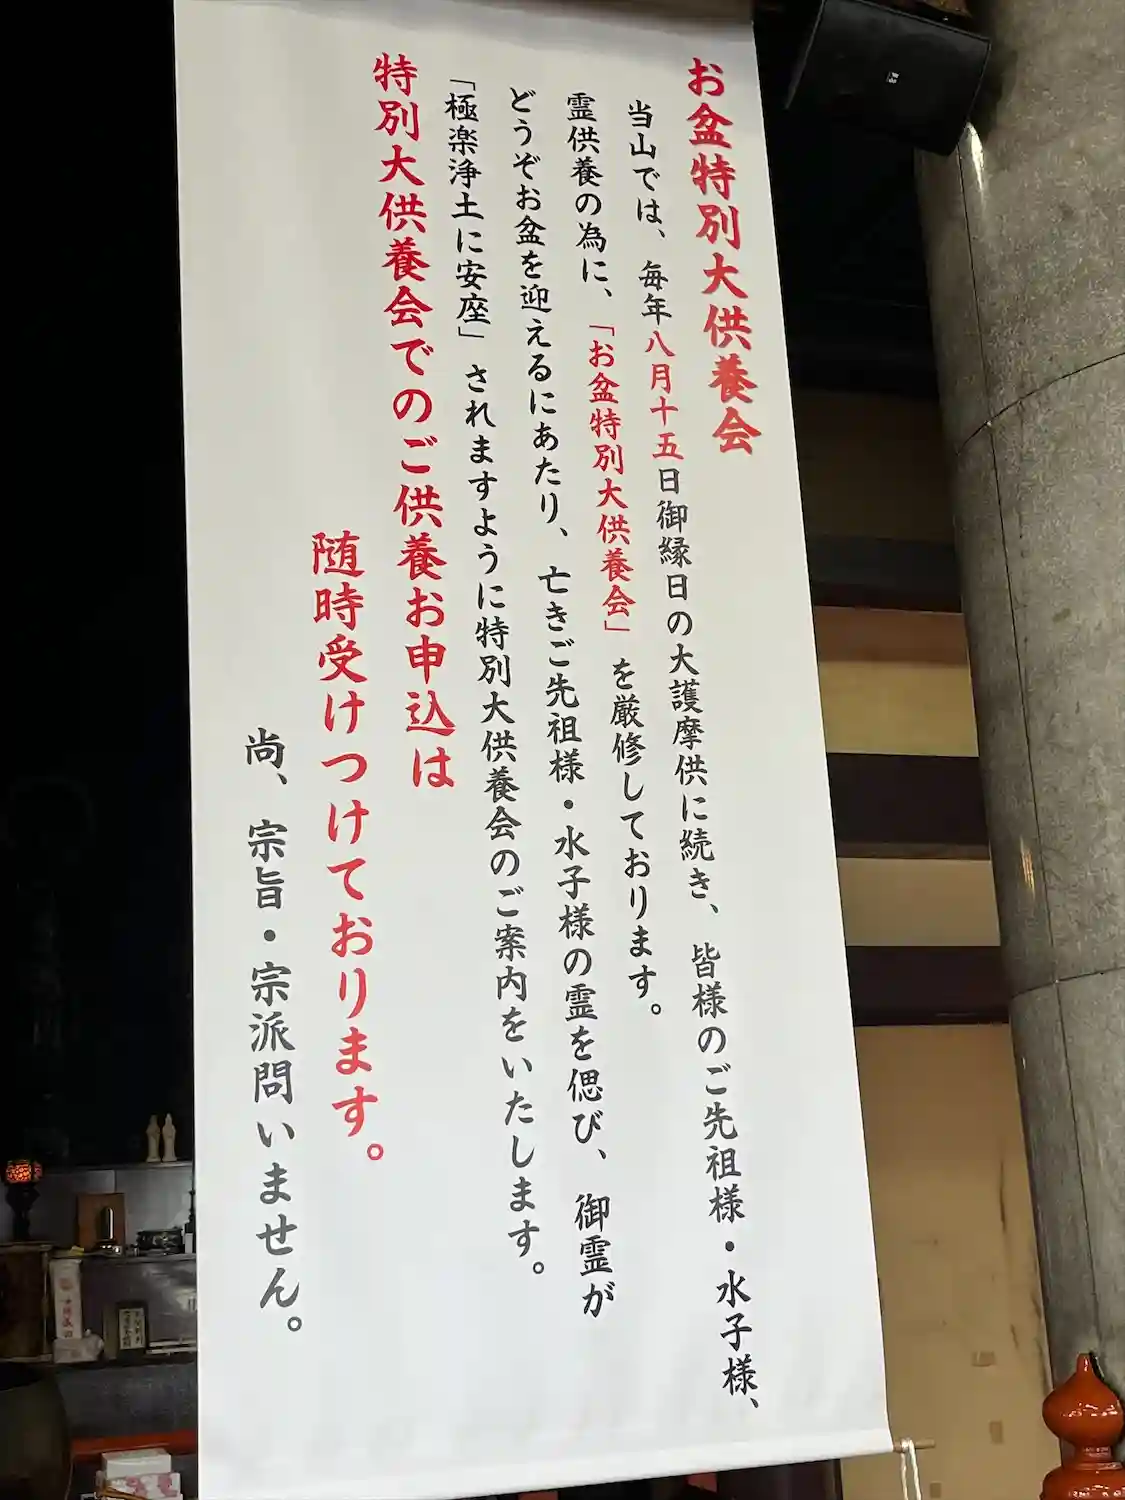 お盆特別大供養会
当山では、毎年八月十五日御縁日の大護摩供に続き、皆様のご先祖様・水子様、
霊供養の為に、「お盆特別大供養会」を厳修しております。
どうぞお盆を迎えるにあたり、亡きご先祖様・水子様の霊を偲び、御霊が
「極楽浄土に安座」されますように特別大供養会のご案内をいたします。
特別大供養会でのご供養お申込は
随時受けつけております。
尚、宗旨・宗派問いません。